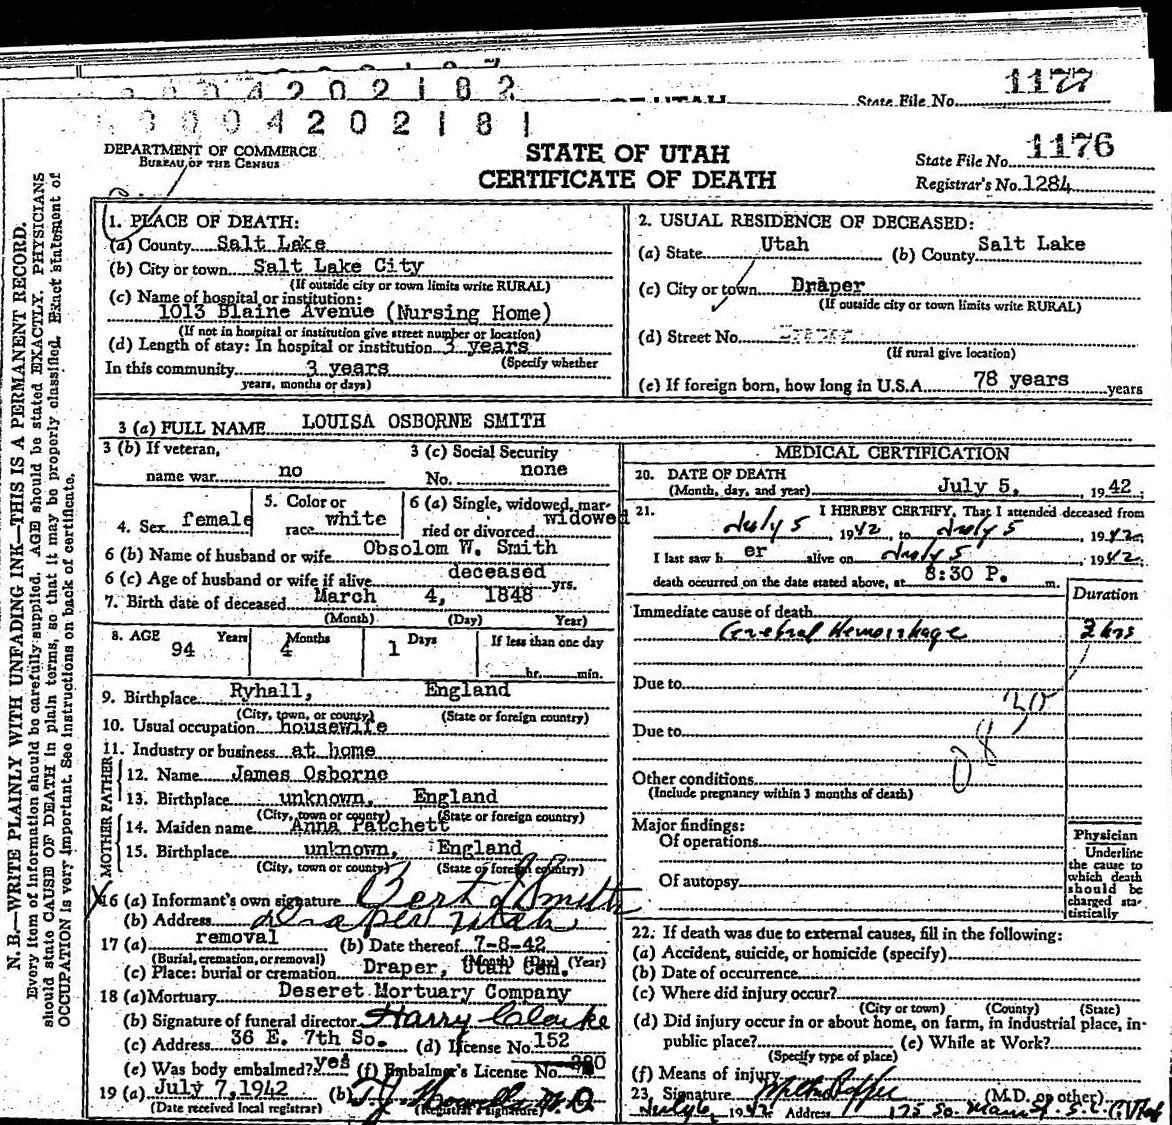 1177
State File No.
4 2 0 2 1 8 2
OF UTAH
4 2 0 2 1 8 1
DEPARTMENT OF COMMERCE
BUREAU OF THE CENSUS
STATE OF UTAH
CERTIFICATE OF DEATH
State File No. 1176
Registrar's No. 1284
N. B.—WRITE PLAINLY WITH UNFADING INK—THIS IS A PERMANENT RECORD.
Every item of information should be carefully supplied. AGE should be stated EXACTLY. PHYSICIANS
should state CAUSE OF DEATH in plain terms, so that it may be properly classified. Exact statement of
OCCUPATION is very important. See instructions on back of certificate.
1. PLACE OF DEATH:
(a) County Salt Lake
(b) City or town Salt Lake City
(If outside city or town limits write RURAL)
(c) Name of hospital or institution:
1013 Blaine Avenue (Nursing Home)
(If not in hospital or institution give street number or location)
(d) Length of stay: In hospital or institution 3 years
(Specify whether
In this community 3 years
years, months or days)
2. USUAL RESIDENCE OF DECEASED:
(a) State Utah (b) County Salt Lake
(c) City or town Draper
(If outside city or town limits write RURAL)
(d) Street No.
(If rural give location)
(e) If foreign born, how long in U.S.A. 78 years years
3 (a) FULL NAME LOUISA OSBORNE SMITH
3 (b) If veteran,
name war no
3 (c) Social Security
No. none
4. Sex female
5. Color or
race white
6 (a) Single, widowed, mar-
ried or divorced widowed
6 (b) Name of husband or wife Obsolom W. Smith
6 (c) Age of husband or wife if alive deceased yrs.
7. Birth date of deceased March 4, 1848
(Month) (Day) Year)
8. AGE Years Months Days If less than one day
94 4 1 hr. min.
9. Birthplace Ryhall, England
(City, town, or county) (State or foreign country)
10. Usual occupation housewife
11. Industry or business at home
FATHER
12. Name James Osborne
13. Birthplace unknown, England
(City, town or county) (State or foreign country)
MOTHER
14. Maiden name Anna Patchett
15. Birthplace unknown, England
(City, town or county) (State or foreign country)
X 16 (a) Informant's own signature Bert L Smith
(b) Address Draper Utah
17 (a) removal (b) Date thereof 7-8-42
(Burial, cremation, or removal) (Month) (Day) (Year)
(c) Place: burial or cremation Draper, Utah Cem.
18 (a) Mortuary Deseret Mortuary Company
(b) Signature of funeral director Harry Clarke
(c) Address 36 E. 7th So. (d) License No. 152
(e) Was body embalmed? yes (f) Embalmer's License No.
19 (a) July 7, 1942 (b)
(Date received local registrar) (Registrar's signature)
MEDICAL CERTIFICATION
20. DATE OF DEATH
(Month, day, and year) July 5, , 1942.
21. I HEREBY CERTIFY, That I attended deceased from
July 5 , 1942, to July 5 , 1942.
I last saw h er alive on July 5 , 1942.
death occurred on the date stated above, at 8:30 P. m.
Duration
Immediate cause of death
Cerebral Hemorrhage 2 hrs
Due to
Due to
Other conditions
(Include pregnancy within 3 months of death)
Major findings:
Of operations
Of autopsy
Physician
Underline
the cause to
which death
should be
charged sta-
tistically
22. If death was due to external causes, fill in the following:
(a) Accident, suicide, or homicide (specify)
(b) Date of occurrence
(c) Where did injury occur?
(City or town) (County) (State)
(d) Did injury occur in or about home, on farm, in industrial place, in-
public place? (e) While at Work?
(Specify type of place)
(f) Means of injury
23. Signature (M.D. or other)
July 6, 1942 Address 175 So. Main St. S.L.C. Utah